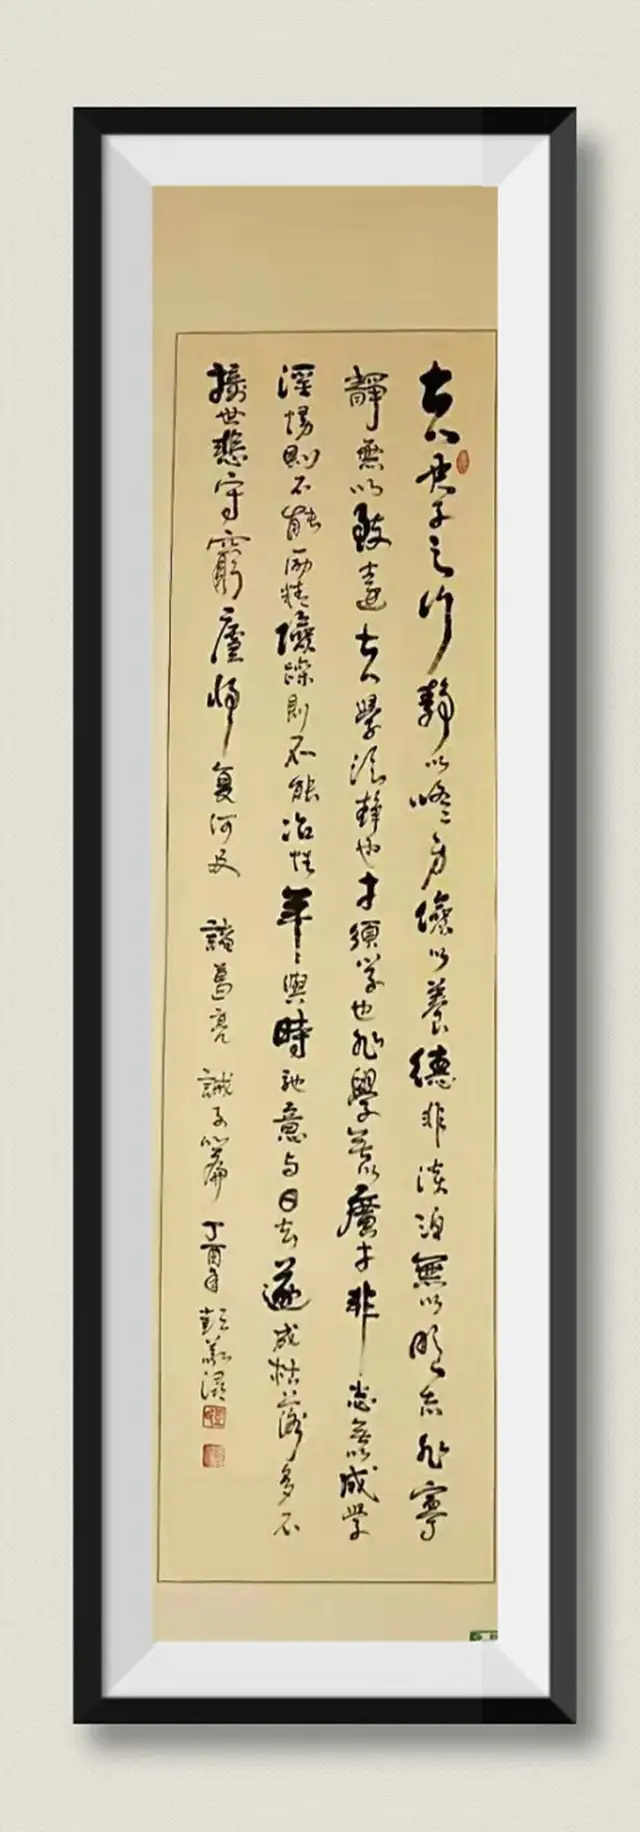 夫君子之行靜以修身儉以養德非淡泊無以明志非寧
靜無以致遠夫學須靜也才須学也非學無以廣才非志無以成學
淫慢則不能励精險躁則不能冶性年與時馳意与日去遂成枯落多不
接世悲守窮廬將复何及 諸葛亮 誡子篇 丁酉年 彭